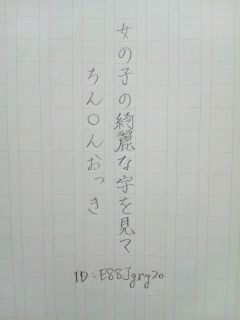 女の子の綺麗な字を見て
ちん○んおっき
ID:E88Jgry20